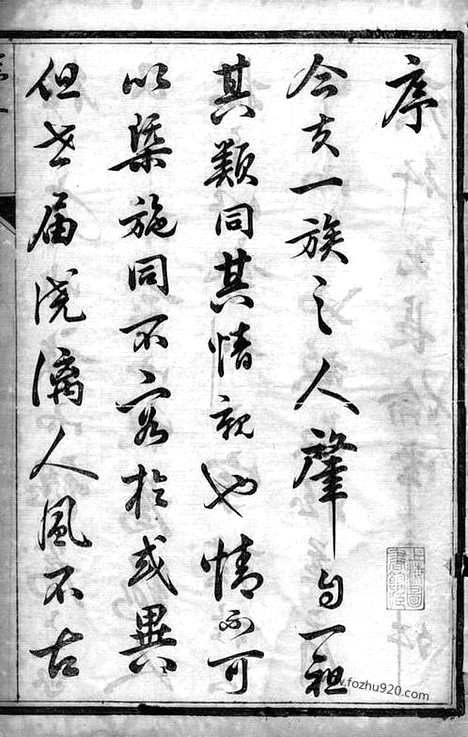 序
今夫一族之人肇自一祖
其類同其情親也情不可
以槩施同不容於或異
但世届澆漓人風不古
上海圖書館藏
www.fozhu920.com